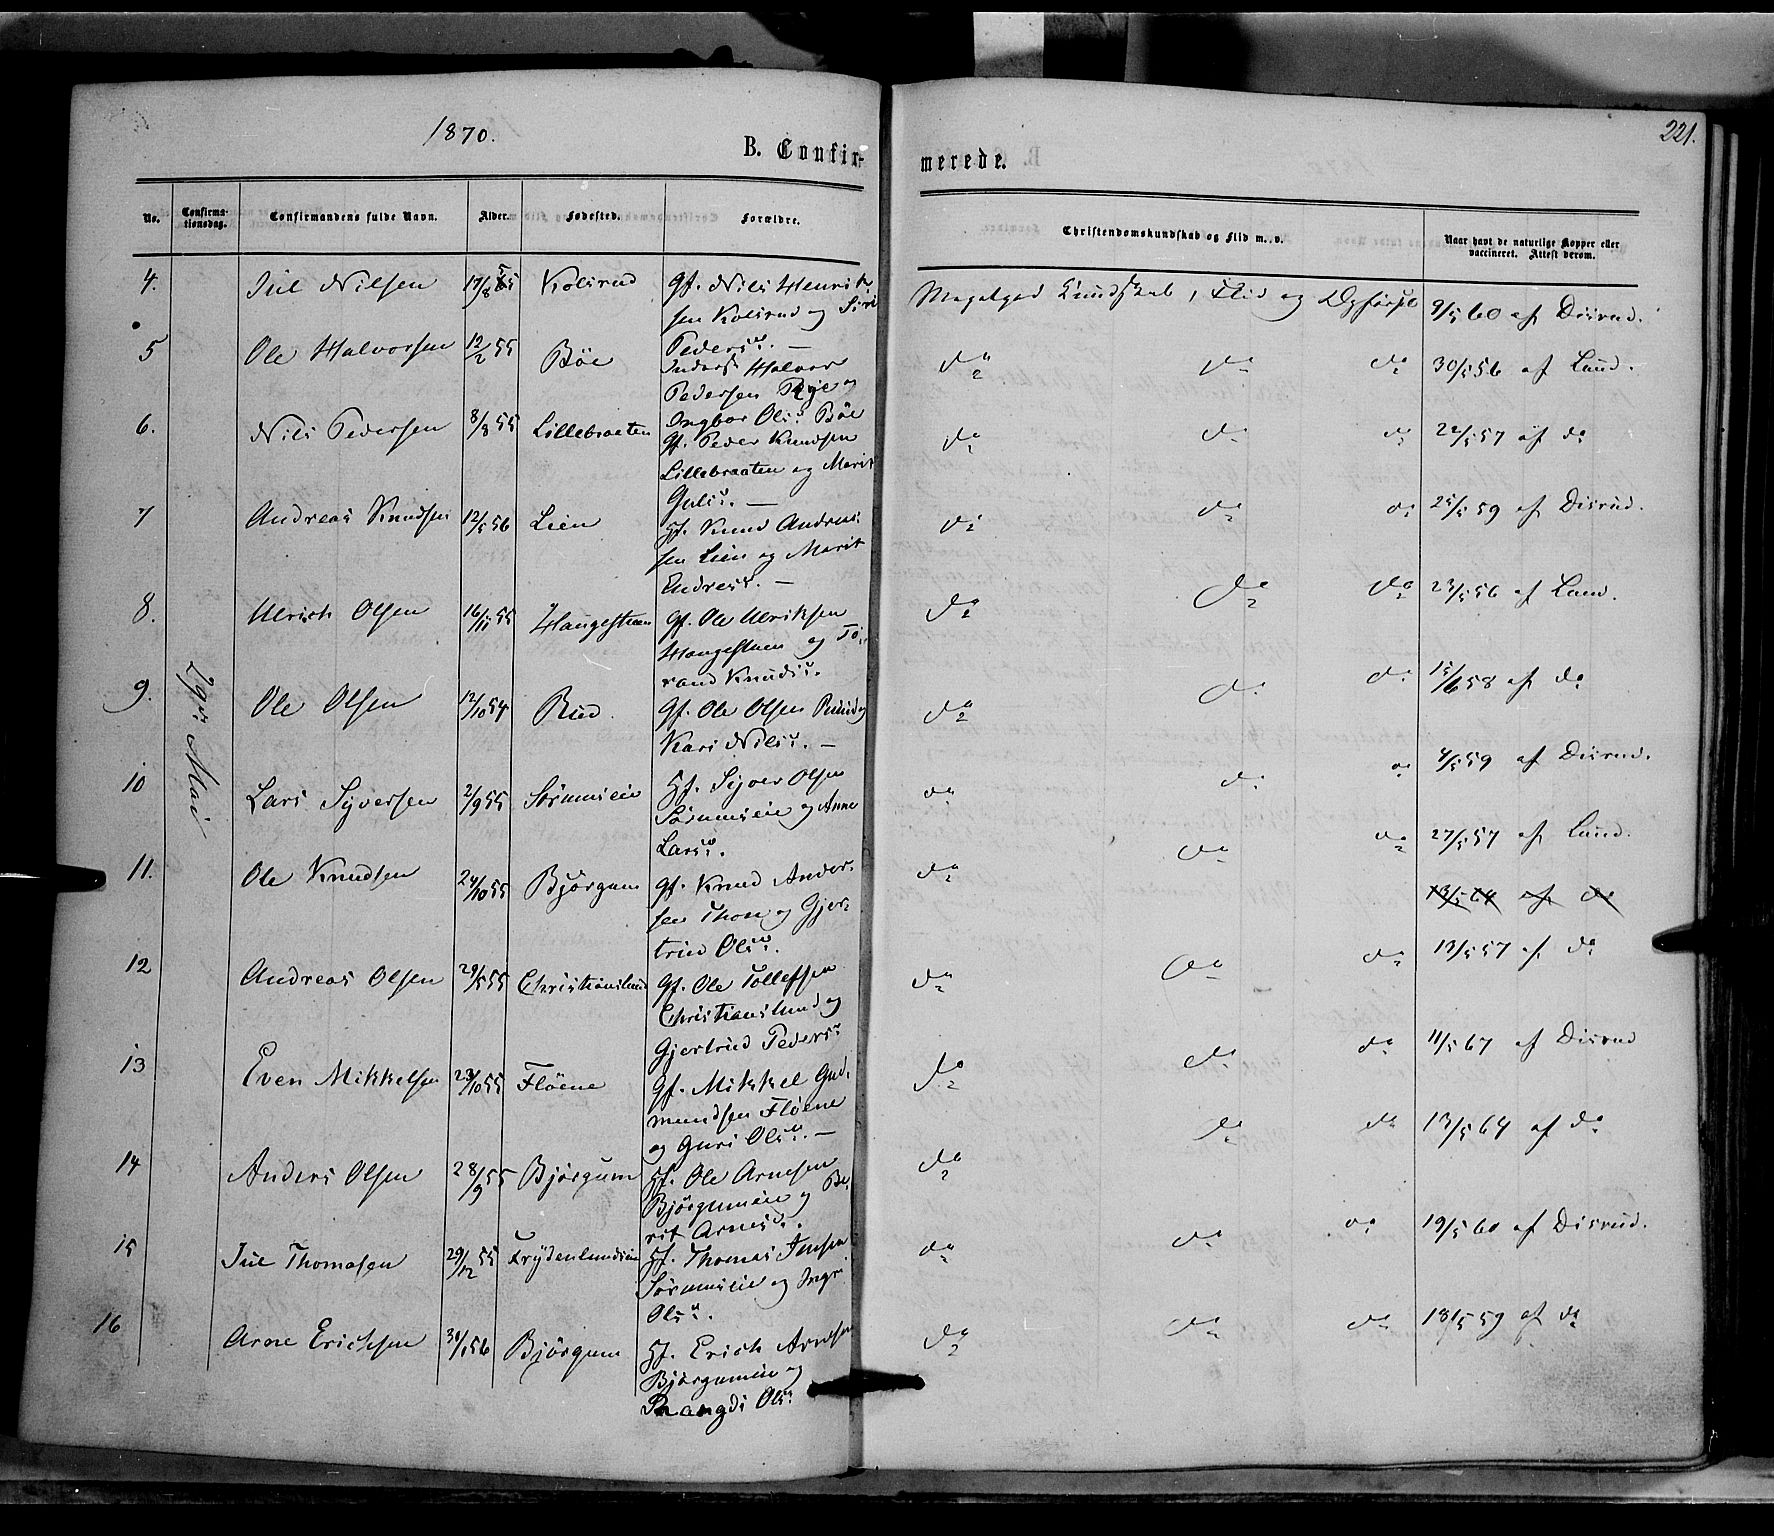 1870.
221.
B. Confir-
merede.
No.
Confirma-
tionsdag.
Confirmandens fulde Navn.
Alder.
Fødested.
Forældre.
Christendomskundskab og Flid m. v.
Naar havt de naturlige Kopper eller
vaccineret. Attest derom.
29de Mai
4. Jul Nilsen 17/8 55 Kolsrud Gf. Nils Henrik- Megetgod Kundskab, Flid og Opførsel 9/5 60 af Disrud.
sen Kolsrud og Siri
Pedersd. —
5 Ole Halvorsen 12/2 55 Böe Inderst Halvor do do do 30/5 56 af Lund.
Pedersen Rye og
Ingbor Olsd. Böe
6. Nils Pedersen 8/8 55 Lillebraaten Gf. Peder Knudsen do do do 22/5 57 af do
Lillebraaten og Marit
Gulsd. —
7 Andreas Knudsen 12/5 56 Lien Hf. Knud Andrea- do do do 25/5 59 af Disrud.
sen Lien og Marit
Endresd. —
8. Ulrich Olsen 16/11 55 Haugestuen Gf. Ole Ulriksen do do do 23/5 56 af Lund.
Haugestuen og To-
rand Knudsd.
9. Ole Olsen 12/10 54 Rud Gf. Ole Olsen og do do do 15/6 58 af do
Kari Nilsd. —
10 Lars Syversen 2/9 55 Sörumseie Hf. Syver Olsen do do do 4/5 59 af Disrud.
Sörumseie og Anne
Larsd.
11. Ole Knudsen 24/10 55 Bjørgum Gf. Knud Ander- do do do 27/5 57 af Lund.
sen Thon og Gjer- 13/5 64 af do
trud Olsd.
12 Andreas Olsen 29/5 55 Christianslund Gf. Ole Tollefsen do do do 13/5 57 af do
Christianslund og
Gjertrud Pedersd
13 Even Mikkelsen 23/10 55 Flöene Gf. Mikkel Gud- do do do 11/5 67 af Disrud
mundsen Flöene
og Guri Olsd. —
14 Anders Olsen 28/9 55 Bjørgum Hf. Ole Arnesen do do do 13/5 64 af do
Bjørgumeie og Be-
rit Arnesd.
15 Jul Thomasen 29/12 55 Frydenlundseie Hf. Thomas Jensen do do do 19/5 60 af Disrud.
Sörumseie og Ingri
Olsd.
16 Arne Erichsen 30/1 56 Bjørgum Hf. Erich Arnesen do do do 18/5 59 af do
Bjørgumeie og
Rangdi Olsd